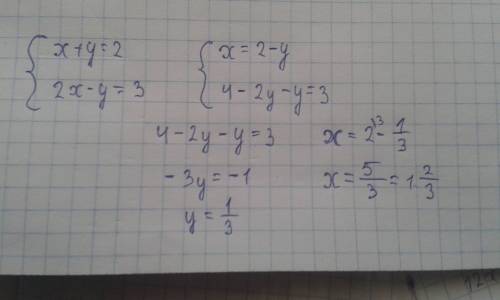 { x + y = 2
2x - y = 3
{ x = 2 - y
4 - 2y - y = 3
4 - 2y - y = 3
- 3y = -1
y = 1/3
x = 2\3 - 1/3
x = 5/3 = 1 2/3